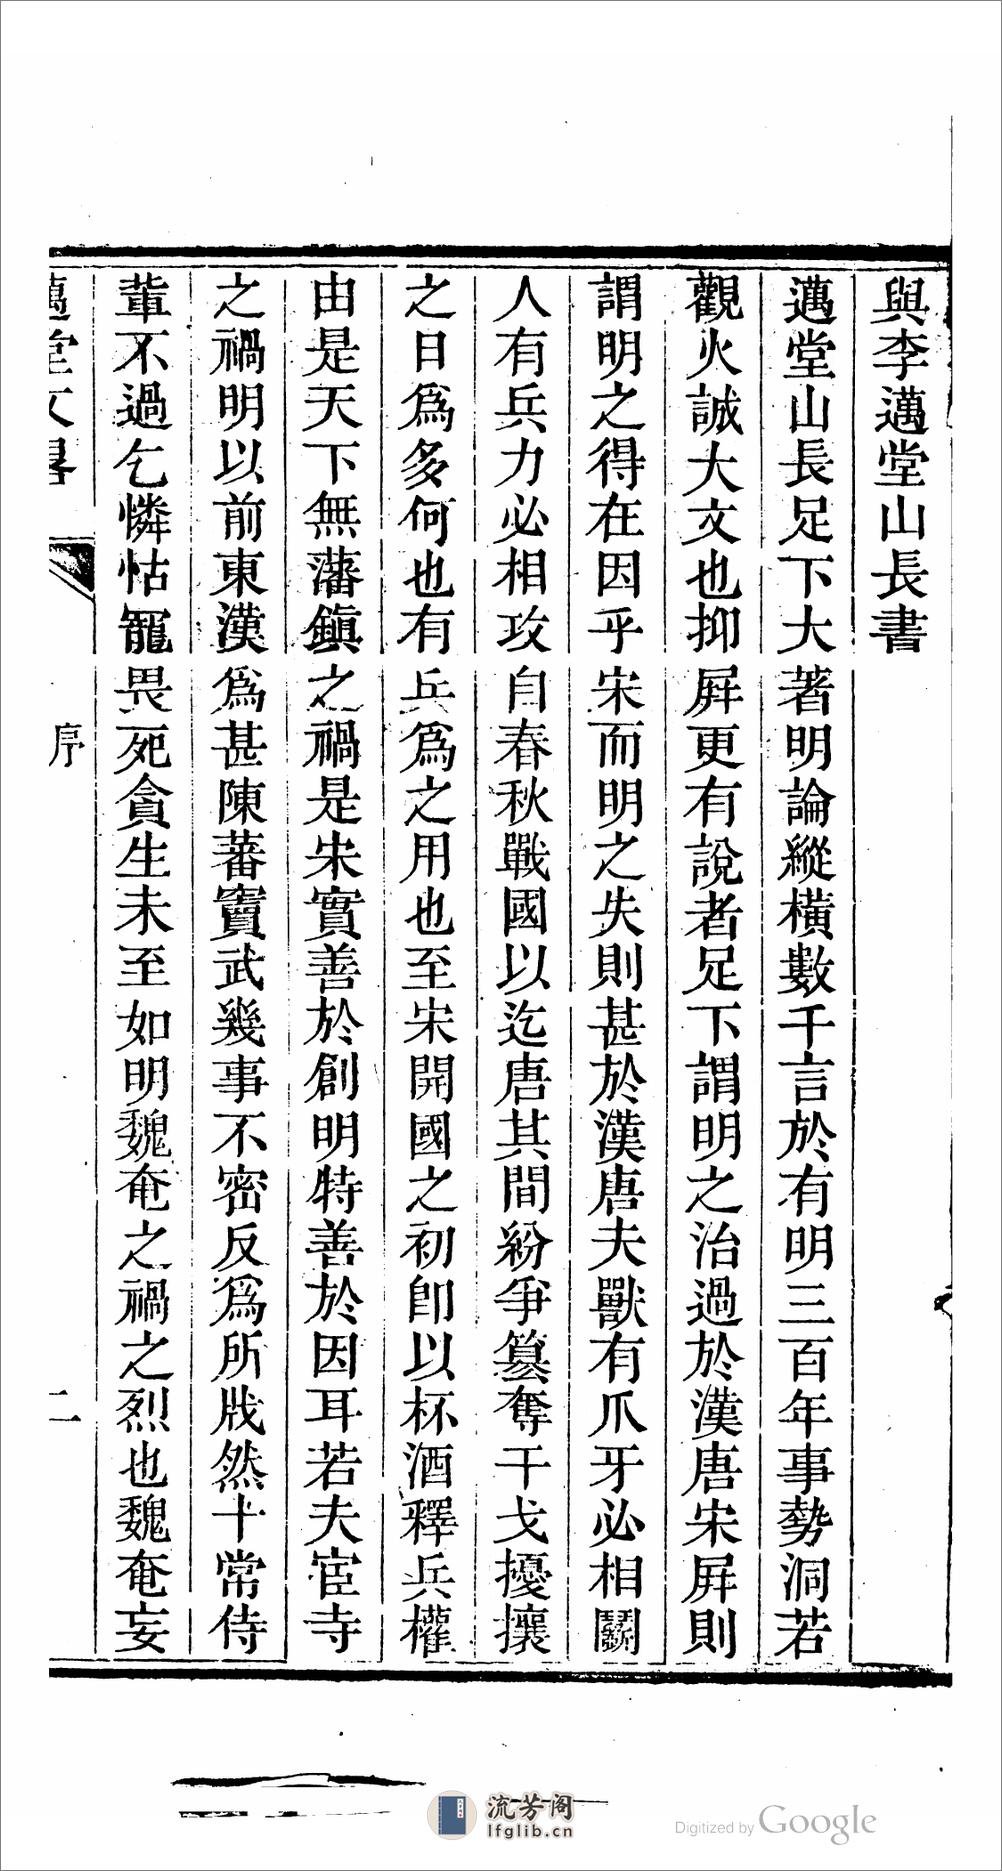 與李邁堂山長書
邁堂山長足下大著明論縱橫數千言於有明三百年事勢洞若
觀火誠大文也抑屛更有說者足下謂明之治過於漢唐宋屛則
謂明之得在因乎宋而明之失則甚於漢唐夫獸有爪牙必相鬬
人有兵力必相攻自春秋戰國以迄唐其間紛爭篡奪干戈擾攘
之日爲多何也有兵爲之用也至宋開國之初卽以杯酒釋兵權
由是天下無藩鎭之禍是宋實善於創明特善於因耳若夫宦寺
之禍明以前東漢爲甚陳蕃竇武幾事不密反爲所戕然十常侍
輩不過乞憐怙寵畏死貪生未至如明魏奄之禍之烈也魏奄妄
邁堂文畧
序
二
流芳阁
lfglib.cn
Digitized by Google